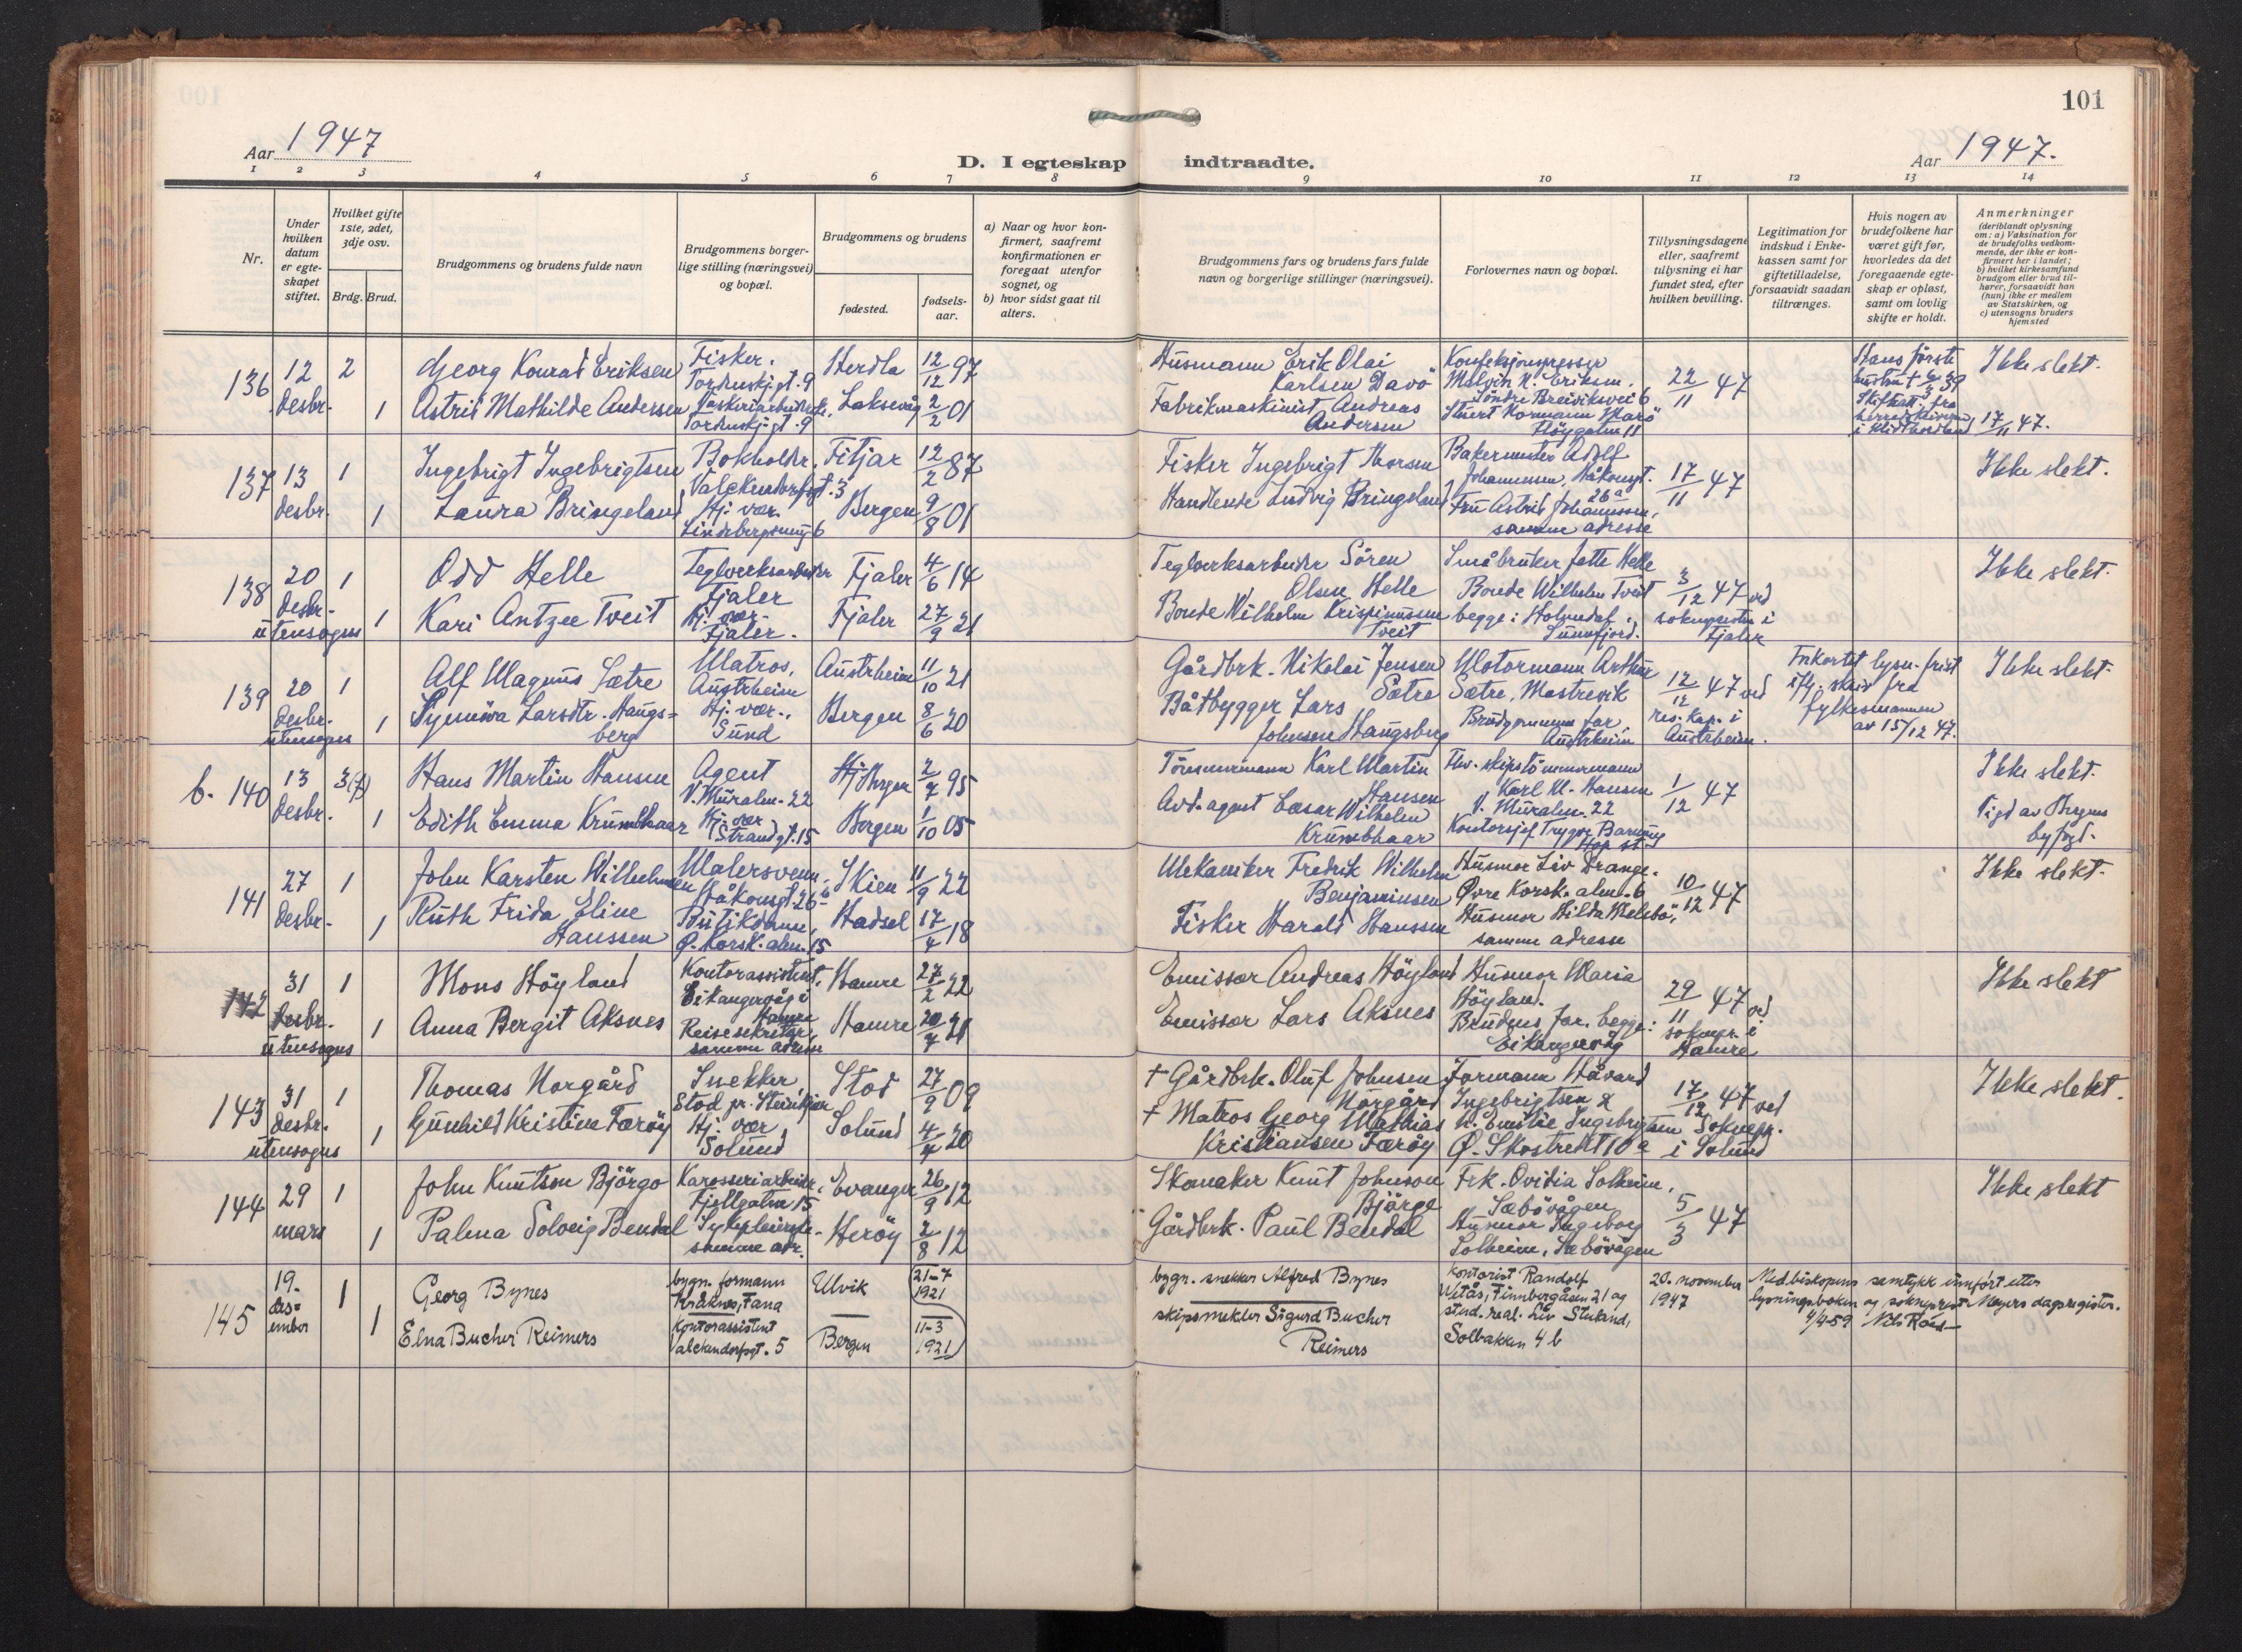 101
Aar 1947
D. I egteskap indtraadte.
Aar 1947.
1 2 3 4 5 6 7 8 9 10 11 12 13 14
Nr.
Under hvilken datum er egte-skapet stiftet.
Hvilket gifte 1ste, 2det, 3dje osv.
Brdg. Brud.
Brudgommens og brudens fulde navn
Brudgommens borger-lige stilling (næringsvei) og bopæl.
Brudgommens og brudens
fødested.
fødsels-aar.
a) Naar og hvor kon-firmert, saafremt konfirmationen er foregaat utenfor sognet, og
b) hvor sidst gaat til alters.
Brudgommens fars og brudens fars fulde navn og borgerlige stillinger (næringsvei).
Forlovernes navn og bopæl.
Tillysningsdagene eller, saafremt tillysning ei har fundet sted, efter hvilken bevilling.
Legitimation for indskud i Enke-kassen samt for giftetilladelse, forsaavidt saadan tiltrænges.
Hvis nogen av brudefolkene har været gift før, hvorledes da det foregaaende egte-skap er opløst, samt om lovlig skifte er holdt.
Anmerkninger (deriblandt oplysning om: a) Vaksination for de brudefolks vedkom-mende, der ikke er kon-firmert her i landet; b) hvilket kirkesamfund brudgom eller brud til-hører, forsaavidt han (hun) ikke er medlem av Statskirken, og c) utensogns bruders hjemsted
136 12 desbr. 2 Georg Konrad Eriksen Fisker. Tordenskj.gt. 9 Herdla 12/12 97 Husmann Erik Olai Karlsen Davö Konfeksjonspresser Melvin K. Eriksen. Söndre Breiviksvei 6 22/11 47 Hans förste hustru † 6/3 39 Skifteatt. fra herredskriveren i Midthordland 17/11 47. Ikke slekt.
1 Astrid Mathilde Andersen Tordenskj.gt. 9 Laksevåg 2/2 01 Fabrikmaskinist Andreas Andersen Stuert Marö Höygaten 11
137 13 desbr. 1 Ingebrigt Ingebrigtsen Bokholder, Valckendorfsgt. 3 Fitjar 12/2 87 Fisker Ingebrigt Thorsen Bakermester Adolf Johannessen, Håkonsgt. 26a 17/11 47 Ikke slekt.
1 Laura Bringeland Hj. vær. Bergen 9/8 01 Handlende Ludvig Bringeland Fru Astrid Johannessen, samme adresse
138 20 desbr. utensogns 1 Odd Helle Teglverksarbeider Fjaler Fjaler 4/6 14 Teglverksarbeider Sören Olsen Helle Småbruker Helle 3/12 47 ved soknepresten i Fjaler Ikke slekt.
1 Kari Antzee Tveit Hj. vær. Fjaler. Fjaler 27/9 21 Bonde Wilhelm Krispinussen Tveit Bonde Wilhelm Tveit begge: Holmedal i Sunnfjord.
139 20 desbr. utensogns 1 Alf Magnus Sætre Matros, Austrheim Austrheim 11/10 21 Gårdbrk. Nikolai Jensen Sætre Motormann Arthur Sætre, Mastrevik 12/12 47 ved res. kap. i Austrheim. Forkortet lysn. frist iflg. skriv fra fylkesmannen av 15/12 47. Ikke slekt.
1 Synnöva Larsdtr. Haugs-berg Hj. vær., Sund Bergen 8/6 20 Båtbygger Lars Johnsen Haugsberg Brudgommens far, Austrheim
b. 140 13 desbr. 3(f) Hans Martin Hansen Agent V. Muralm. 22 Bergen 2/7 95 Tömmermann Karl Martin Hansen Fhv. skipstömmermann Karl M. Hansen V. Muralm. 22 1/12 47 Ikke slekt. Vigd av Bergens byfogd.
1 Edith Emma Krumbhaar Hj. vær Strandgt. 15 Bergen 1/10 05 Avd. agent Cæsar Wilhelm Krumbhaar Kontorsjef Trygve Hop st.
141 27 desbr. 1 John Karsten Wilhelmsen Malersvenn, Håkonsgt. 26 Skien 11/9 22 Mekaniker Fredrik Wilhelm Benjaminsen Husmor Liv Drange. Øvre Korsk. alm. 6 10/12 47 Ikke slekt.
1 Ruth Frida Eline Hanssen Butikdame, Ø. Korsk. alm. 15 Hadsel 17/4 18 Fisker Harald Hanssen Husmor Hilda samme adresse
142 31 desbr. utensogns 1 Mons Höyland Kontorassistent, Eikangervåg i Hamre Hamre 27/2 22 Emissær Andreas Höyland Husmor Maria Höyland. 29/11 47 ved soknepr. i Hamre Ikke slekt
1 Anna Bergit Aksnes Reisesekretær, samme adresse Hamre 20/7 21 Emissær Lars Aksnes Brudens far. begge: Eikangervåg
143 31 desbr. utensogns 1 Thomas Norgård Snekker, Stod pr. Steinkjer Stod 27/9 09 † Gårdbrk. Oluf Johnsen Norgård Formann Håvard Ingebrigtsen & 17/12 47 ved soknepr. i Solund Ikke slekt.
1 Gunhild Kristine Færöy Hj. vær Solund Solund 4/7 20 † Matros Georg Mathias Kristiansen Færöy h. Emilie Ingebrigtsen Ø. Skostredet 10a
144 29 mars 1 John Knutsen Björgo Karosseriarbeider, Fjellgaten 15 Evanger 26/9 12 Skomaker Knut Johnson Björgo Frk. Ovidia Solheim, Sæbövågen 5/3 47 Ikke slekt
1 Palma Solveig Bendal Sykepleierske. samme adr. Heröy 2/8 12 Gårdbrk. Paul Bendal Husmor Ingeborg Solheim, Sæbövågen
145 19. des=ember 1 Georg Bynes bygn. formann Kråknes, Fana Ulvik 21-7 1921 bygn. snekker Alfred Bynes kontorist Randolf Vetås, Finnbergåsen 21 og 20. november 1947 Med biskopens samtykk innført etter lysningsboken og sokneprest Meyers dagsregister. 4/4-59 Nils Roed
1 Elna Bucher Reimers kontorassistent Valckendorfsgt. 5 Bergen 11-3 1921 skipsmekler Sigurd Bucher Reimers stud. real. Liv Solbakken 4b